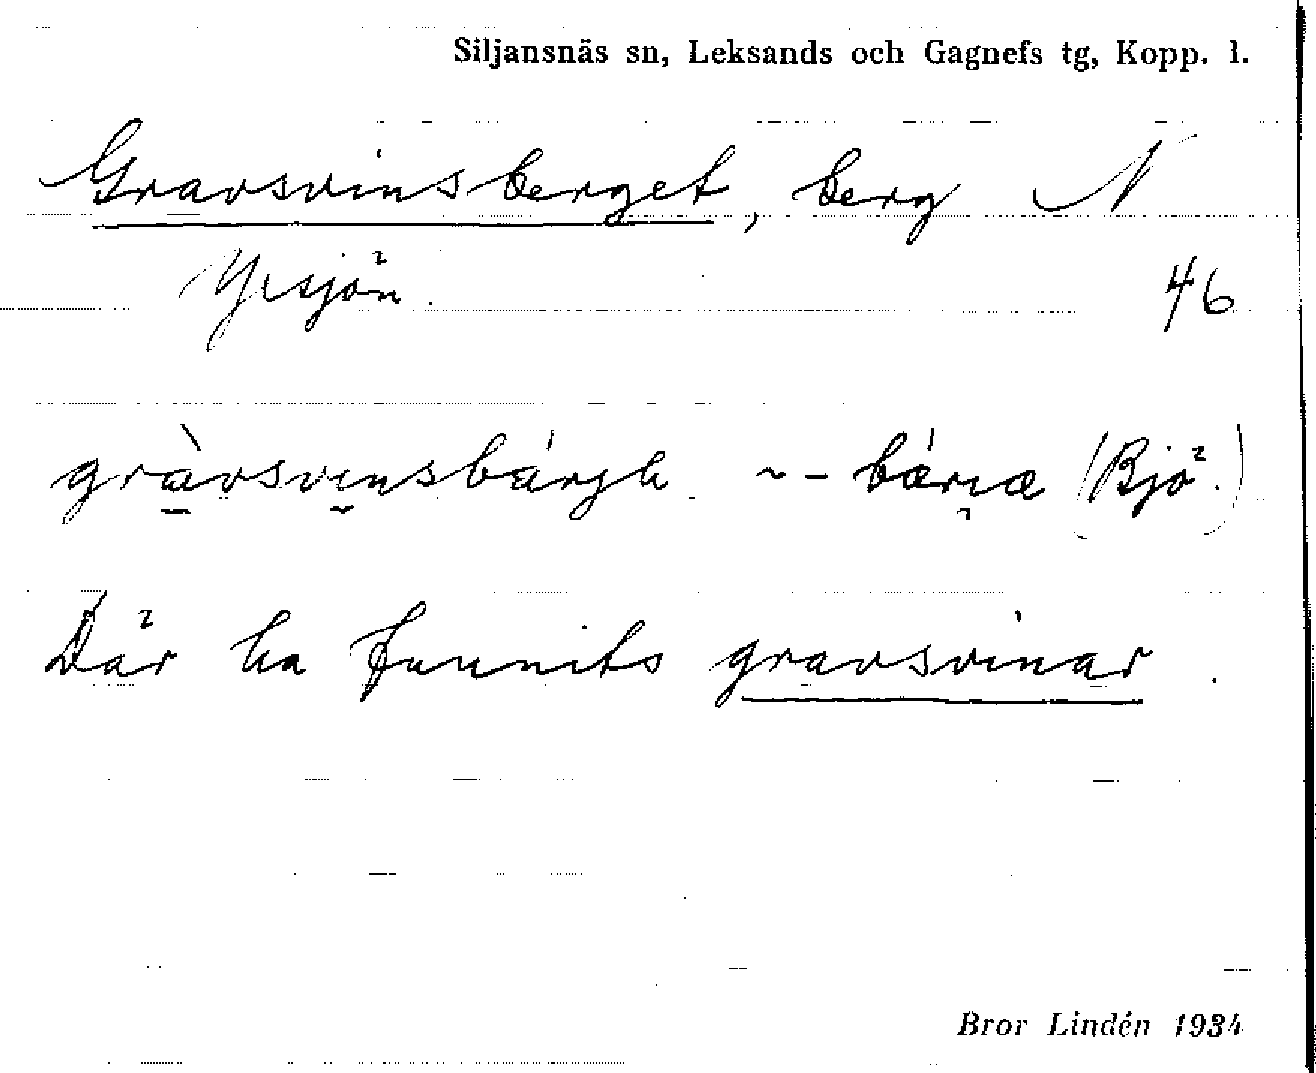 Siljansnäs sn, Leksands och Gagnefs tg, Kopp. l.
Gravsvinsberget, berg N
Yrsjön. 46
gràvsvinsbárgɩ ~ - bárıæ (Bjö.)
Där ha funnits gravsvinar.
Bror Lindén 1934